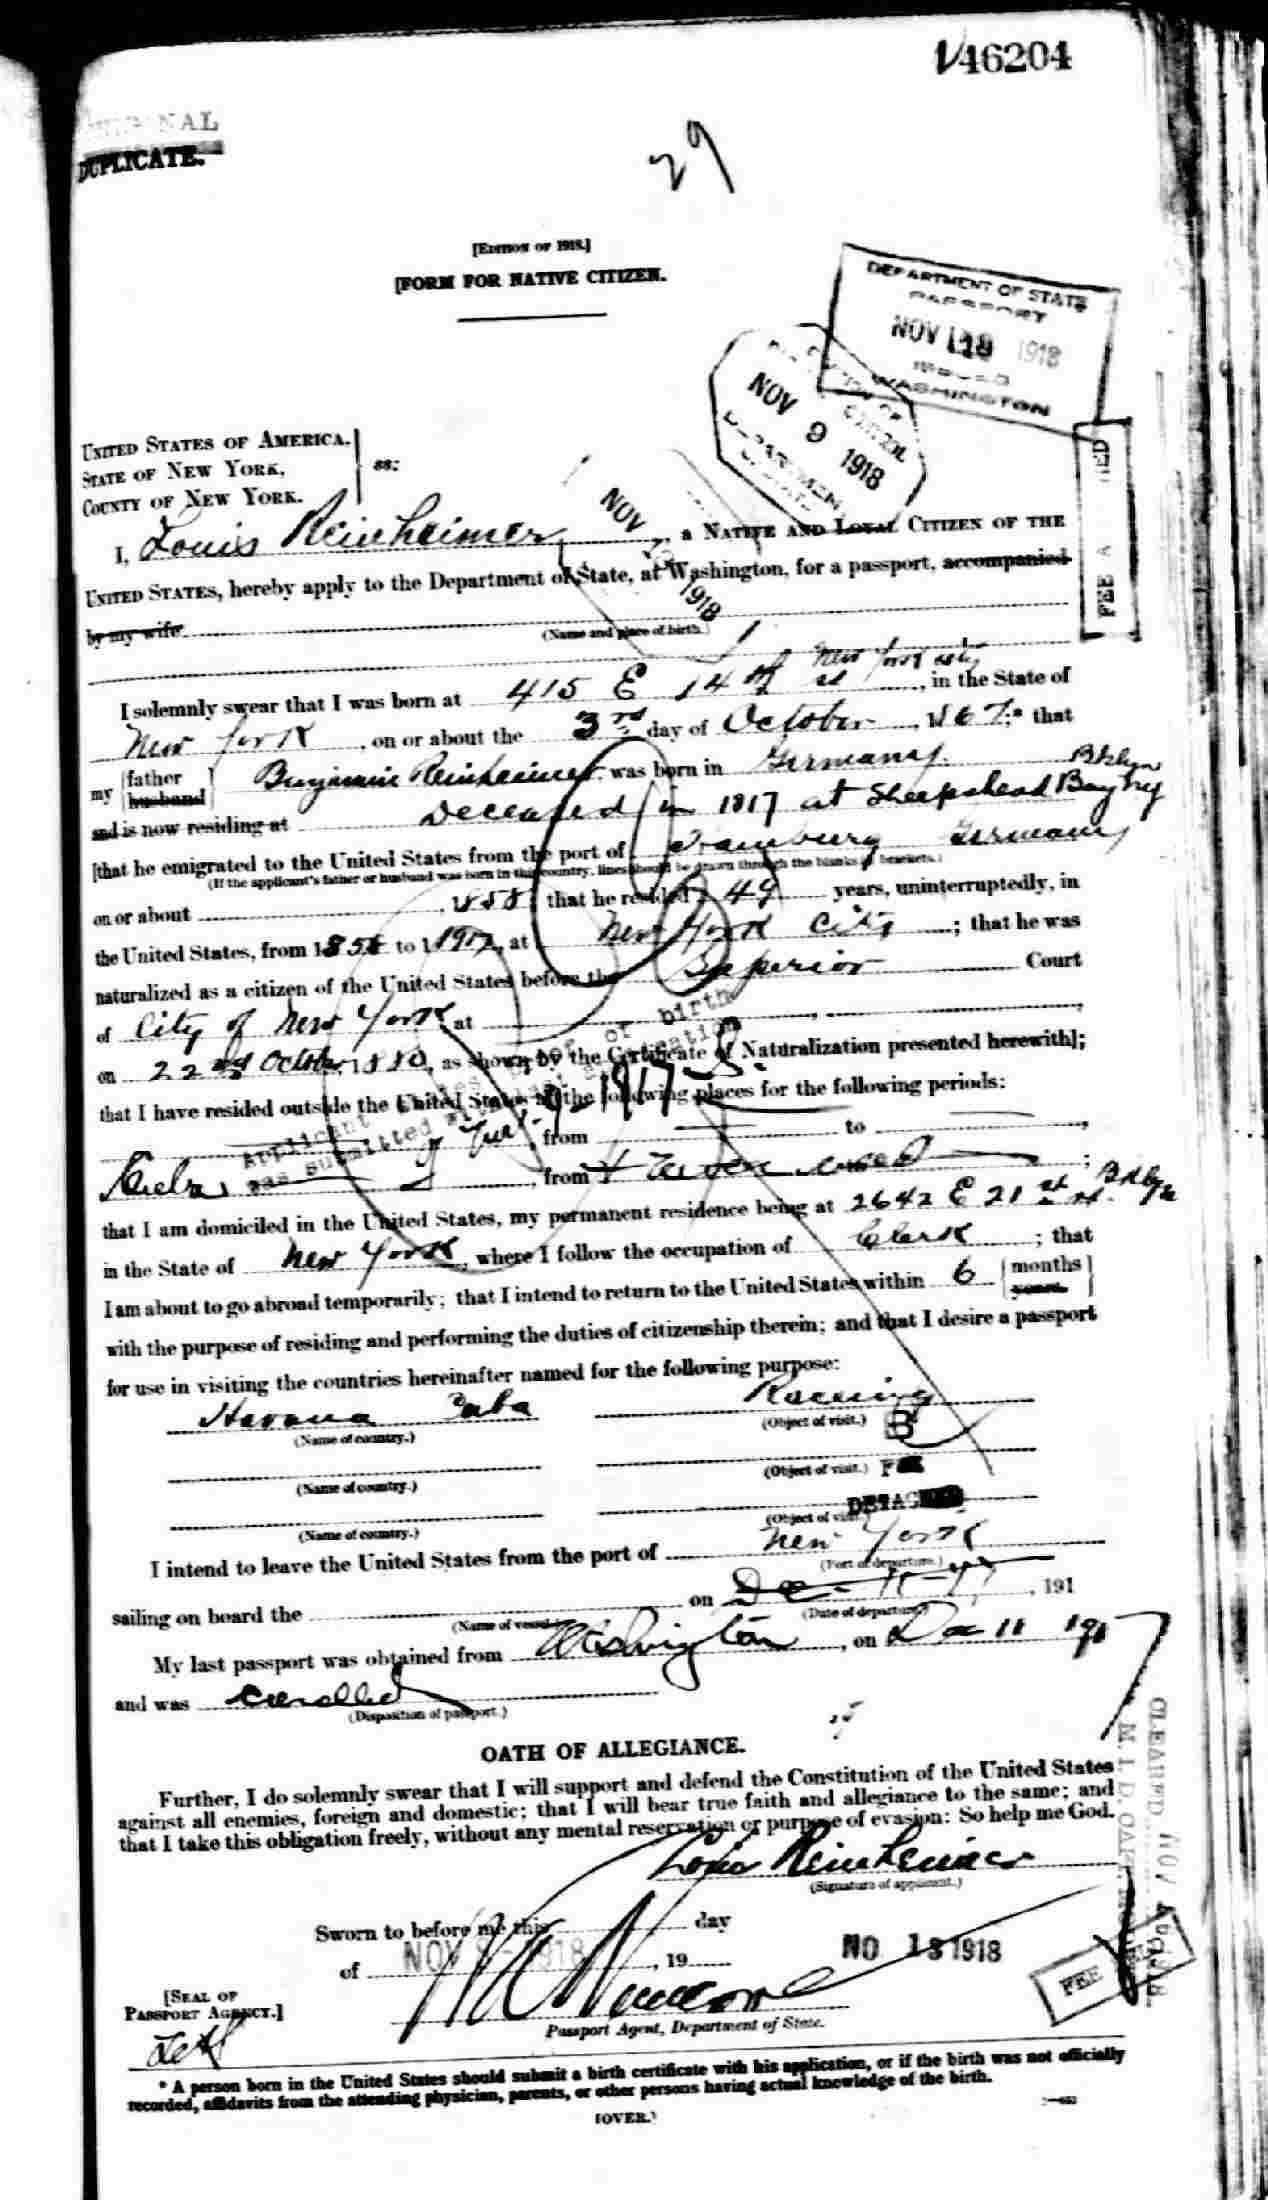 46204
DUPLICATE.
29
[EDITION OF 1918.]
[FORM FOR NATIVE CITIZEN.
DEPARTMENT OF STATE
PASSPORT
NOV 1918
ISSUED
WASHINGTON
NOV 9 1918
UNITED STATES OF AMERICA.
STATE OF NEW YORK,
COUNTY OF NEW YORK.
ss:
NOV 1918
I, Louis Reinheimer, a NATIVE AND LOYAL CITIZEN OF THE
UNITED STATES, hereby apply to the Department of State, at Washington, for a passport, accompanied
by my wife
(Name and place of birth.)
I solemnly swear that I was born at 415 E 14th st New York city, in the State of
New York, on or about the 3rd day of October, 1867;* that
my father husband Benjamin Reinheimer was born in Germany
and is now residing at Deceased in 1917 at Sheepshead Bay Bklyn NY
[that he emigrated to the United States from the port of Hamburg Germany
(If the applicant's father or husband was born in this country, lines should be drawn through the blanks in brackets.)
on or about, 1858; that he resided 49 years, uninterruptedly, in
the United States, from 1858 to 1917, at New York City; that he was
naturalized as a citizen of the United States before the Superior Court
of City of New York at
on 22nd October, 1880, as shown by the Certificate of Naturalization presented herewith];
that I have resided outside the United States at the following places for the following periods:
Applicant's of birth
was submitted with last application
from to
Cuba, from
that I am domiciled in the United States, my permanent residence being at 2642 E 21st st. Bklyn
in the State of New York, where I follow the occupation of Clerk; that
I am about to go abroad temporarily; that I intend to return to the United States within 6 months years
with the purpose of residing and performing the duties of citizenship therein; and that I desire a passport
for use in visiting the countries hereinafter named for the following purpose:
Havana Cuba Raceing
(Name of country.) (Object of visit.) B
(Name of country.) (Object of visit.)
DETACHED
(Name of country.) (Object of visit.)
I intend to leave the United States from the port of New York
(Port of departure.)
sailing on board the on Dec, 191
(Name of vessel.) (Date of departure.)
My last passport was obtained from Washington, on Dec 11 1917
and was cancelled
(Disposition of passport.)
OATH OF ALLEGIANCE.
Further, I do solemnly swear that I will support and defend the Constitution of the United States
against all enemies, foreign and domestic; that I will bear true faith and allegiance to the same; and
that I take this obligation freely, without any mental reservation or purpose of evasion: So help me God.
Louis Reinheimer
(Signature of applicant.)
Sworn to before me this day
of NOV 8 - 1918, 19
NO 13 1918
[SEAL OF
PASSPORT AGENCY.]
Passport Agent, Department of State.
FEE
CLEARED NOV
M. I. D.
* A person born in the United States should submit a birth certificate with his application, or if the birth was not officially
recorded, affidavits from the attending physician, parents, or other persons having actual knowledge of the birth.
[OVER.]